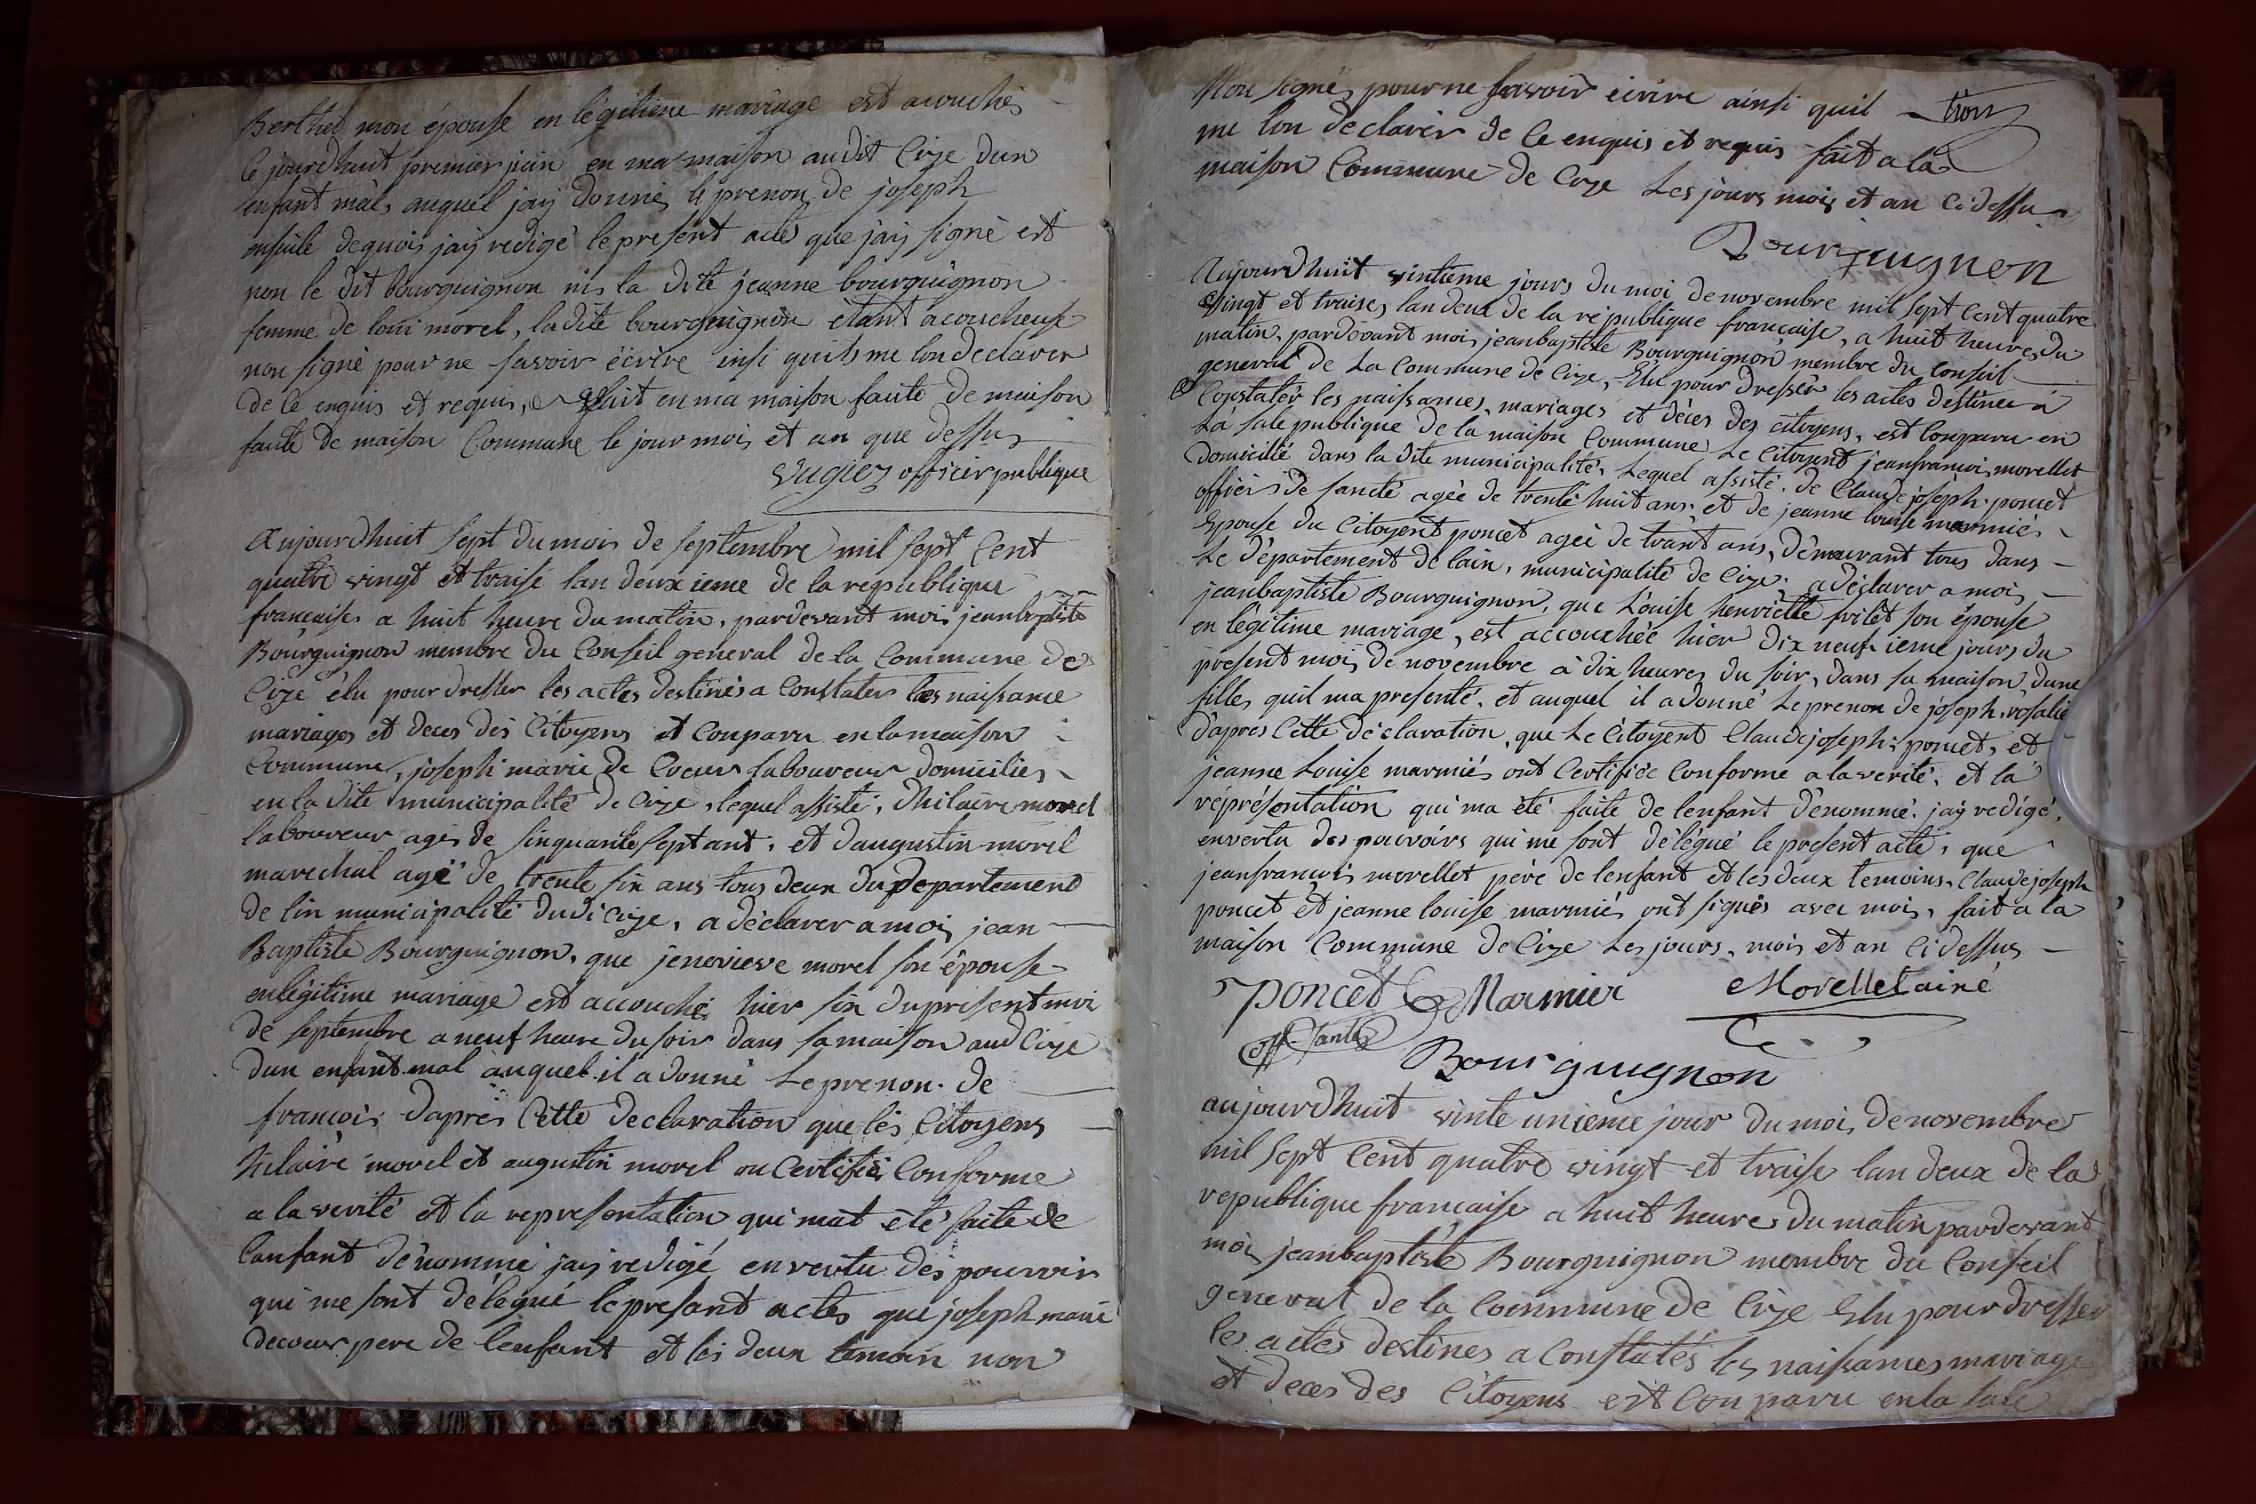 Berthet mon épouse en légitieme mariage est acouchés
ce jourdhuit premier juin en ma maison au dit Cize dun
enfant mâls auquel jaij donnés le prenom de joseph
ensuite dequois jaij redigé le present acte que jaij signé est
non le dit bourguignon nis la dite jeanne bourguignon
femme de loui morel, ladite bourguignon étant acoucheuse
non signé pour ne savoir écrire insi quils me lon declarer
de ce enquis et requis, fait en ma maison faute de maison
faute de maison Commune le jour mois et an que dessus
Vugiez officier publique
Aujourdhuit sept du mois de septembre mil sept Cent
quatre vingt et traise lan deuxieme de la republique
francaise a huit heure du matin, pardevant moi jeanbaptiste
Bourguignon membre du Conseil general de la Commune de
Cize élu pour dresser les actes destinés a Constater les naissance
mariages et deces des Citoyens et Conparu en la maison
Commune, joseph marie de Coeur laboureur domicilies
en la dite municipalité de Cize, lequel assisté, dhilaire morel
laboureur agés de sinquante sept ant, et daugustin morel
marechal agé de trente six ans tous deux du Departement
de lin municipalité dudi cize, a déclarer a moi jean
Baptiste Bourguignon, que jenevieve morel son épouse
en légitime mariage est accouché hier six du present moi
de septembre a neuf heure du soir dans sa maison aud Cize
dun enfant mal auquel il a donné Le prenon de
francois daprés Cette declaration que les Citoyens
hilaire morel et augustin morel on Certifiéi Conforme
a la verité et la representation qui mat été faite de
lenfant dénommé jaij redigé en vertu des pouvoir
qui me sont délegué le presant actes que joseph marie
decoeur pere de lenfant et les deux temoin non
Non signés pour ne savoir écrire ainsi quil tion
me lon declarér de ce enquis et requis fait a la
maison Commune de Cize Les jours mois et an ci dessus
Bourguignon
Aujourdhuit vintieme jours du moi de novembre mil sept Cent quatre
Vingt et traises lan deux de la république française, a huit heures du
matin, pardevant moi jeanbaptiste Bourguignon membre du Conseil
general de La Commune de Cize, Elu pour dresser les actes destinee a
Constatér les naissances, mariages et déces des citoyens, est Comparu en
La sale publique de la maison Commune Le Citoyent jeanfrancois morellet
domicillé dans la dite municipalité, Lequel assisté de Claude joseph poncet
officié de santé agée de trente huit ans et de jeanne louise marmiés
Epouse du Citoyent poncet agée de trant ans, démeurant tous dans
Le département de lain, municipalité de Cize, a déclarer a moi
jeanbaptiste Bourguignon, que Louise henriette frilet son épouse
en légitime mariage, est accouchée hier dix neuf ieme jours du
present mois de novembre à dix heures du soir, dans sa maison, dune
filles quil ma presenté, et auquel il a donné Le prenom de joseph rosalie
daprès Cette déclaration, que Le Citoyent Claude joseph poncet, et
jeanne Louise marmiés ont Certifiéé Conforme a la verité, et la
répréséntation qui ma été faite de lenfant dénommé, jaij redigé,
en vertu des pouvoirs qui me sont délégué le present acte, que
jeanfrancois morellet père de lenfant et les deux temoins Claude joseph
poncet et jeanne louise marmiés ont signés avec mois, fait a la
maison Commune de Cize Les jours, mois et an ci dessus
Poncet Marmier Morellet ainé
off. Santé
Bourguignon
aujourdhuit vinte unieme jour du moi de novembre
mil sept Cent quatre vingt et traise lan deux de la
republique francaise a huit heures du matin pardevant
moi jeanbaptiste Bourguignon membre du Conseil
general de la Commune de Cize Elu pour dresser
les actes destines a Constatés les naissances mariage
et deces des Citoyens est Conparu en la sale